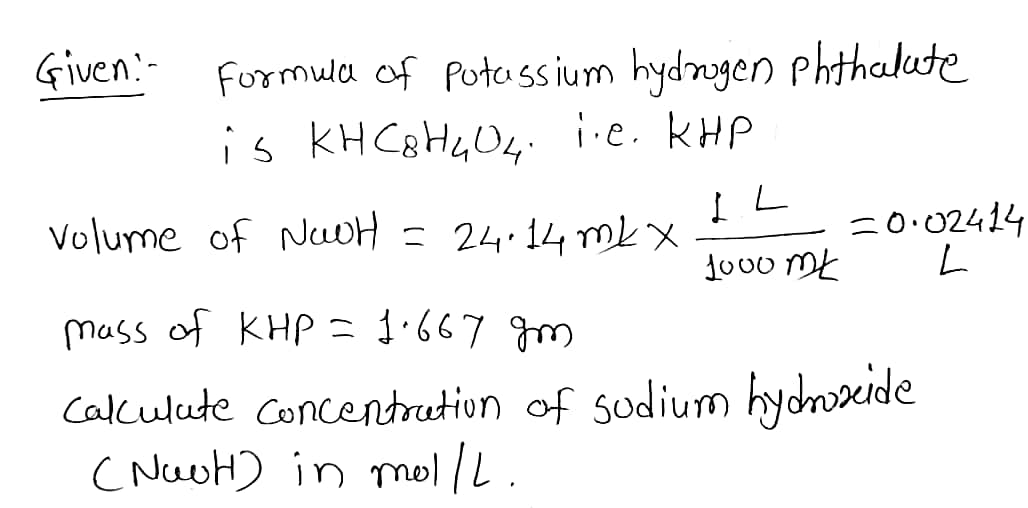 Given:- Formula of Potassium hydrogen phthalate
is KHC8H4O4. i.e. KHP
Volume of NaOH = 24.14 mL × 1 L / 1000 mL = 0.02414 L
mass of KHP = 1.667 gm
Calculate concentration of sodium hydroxide
(NaOH) in mol/L.